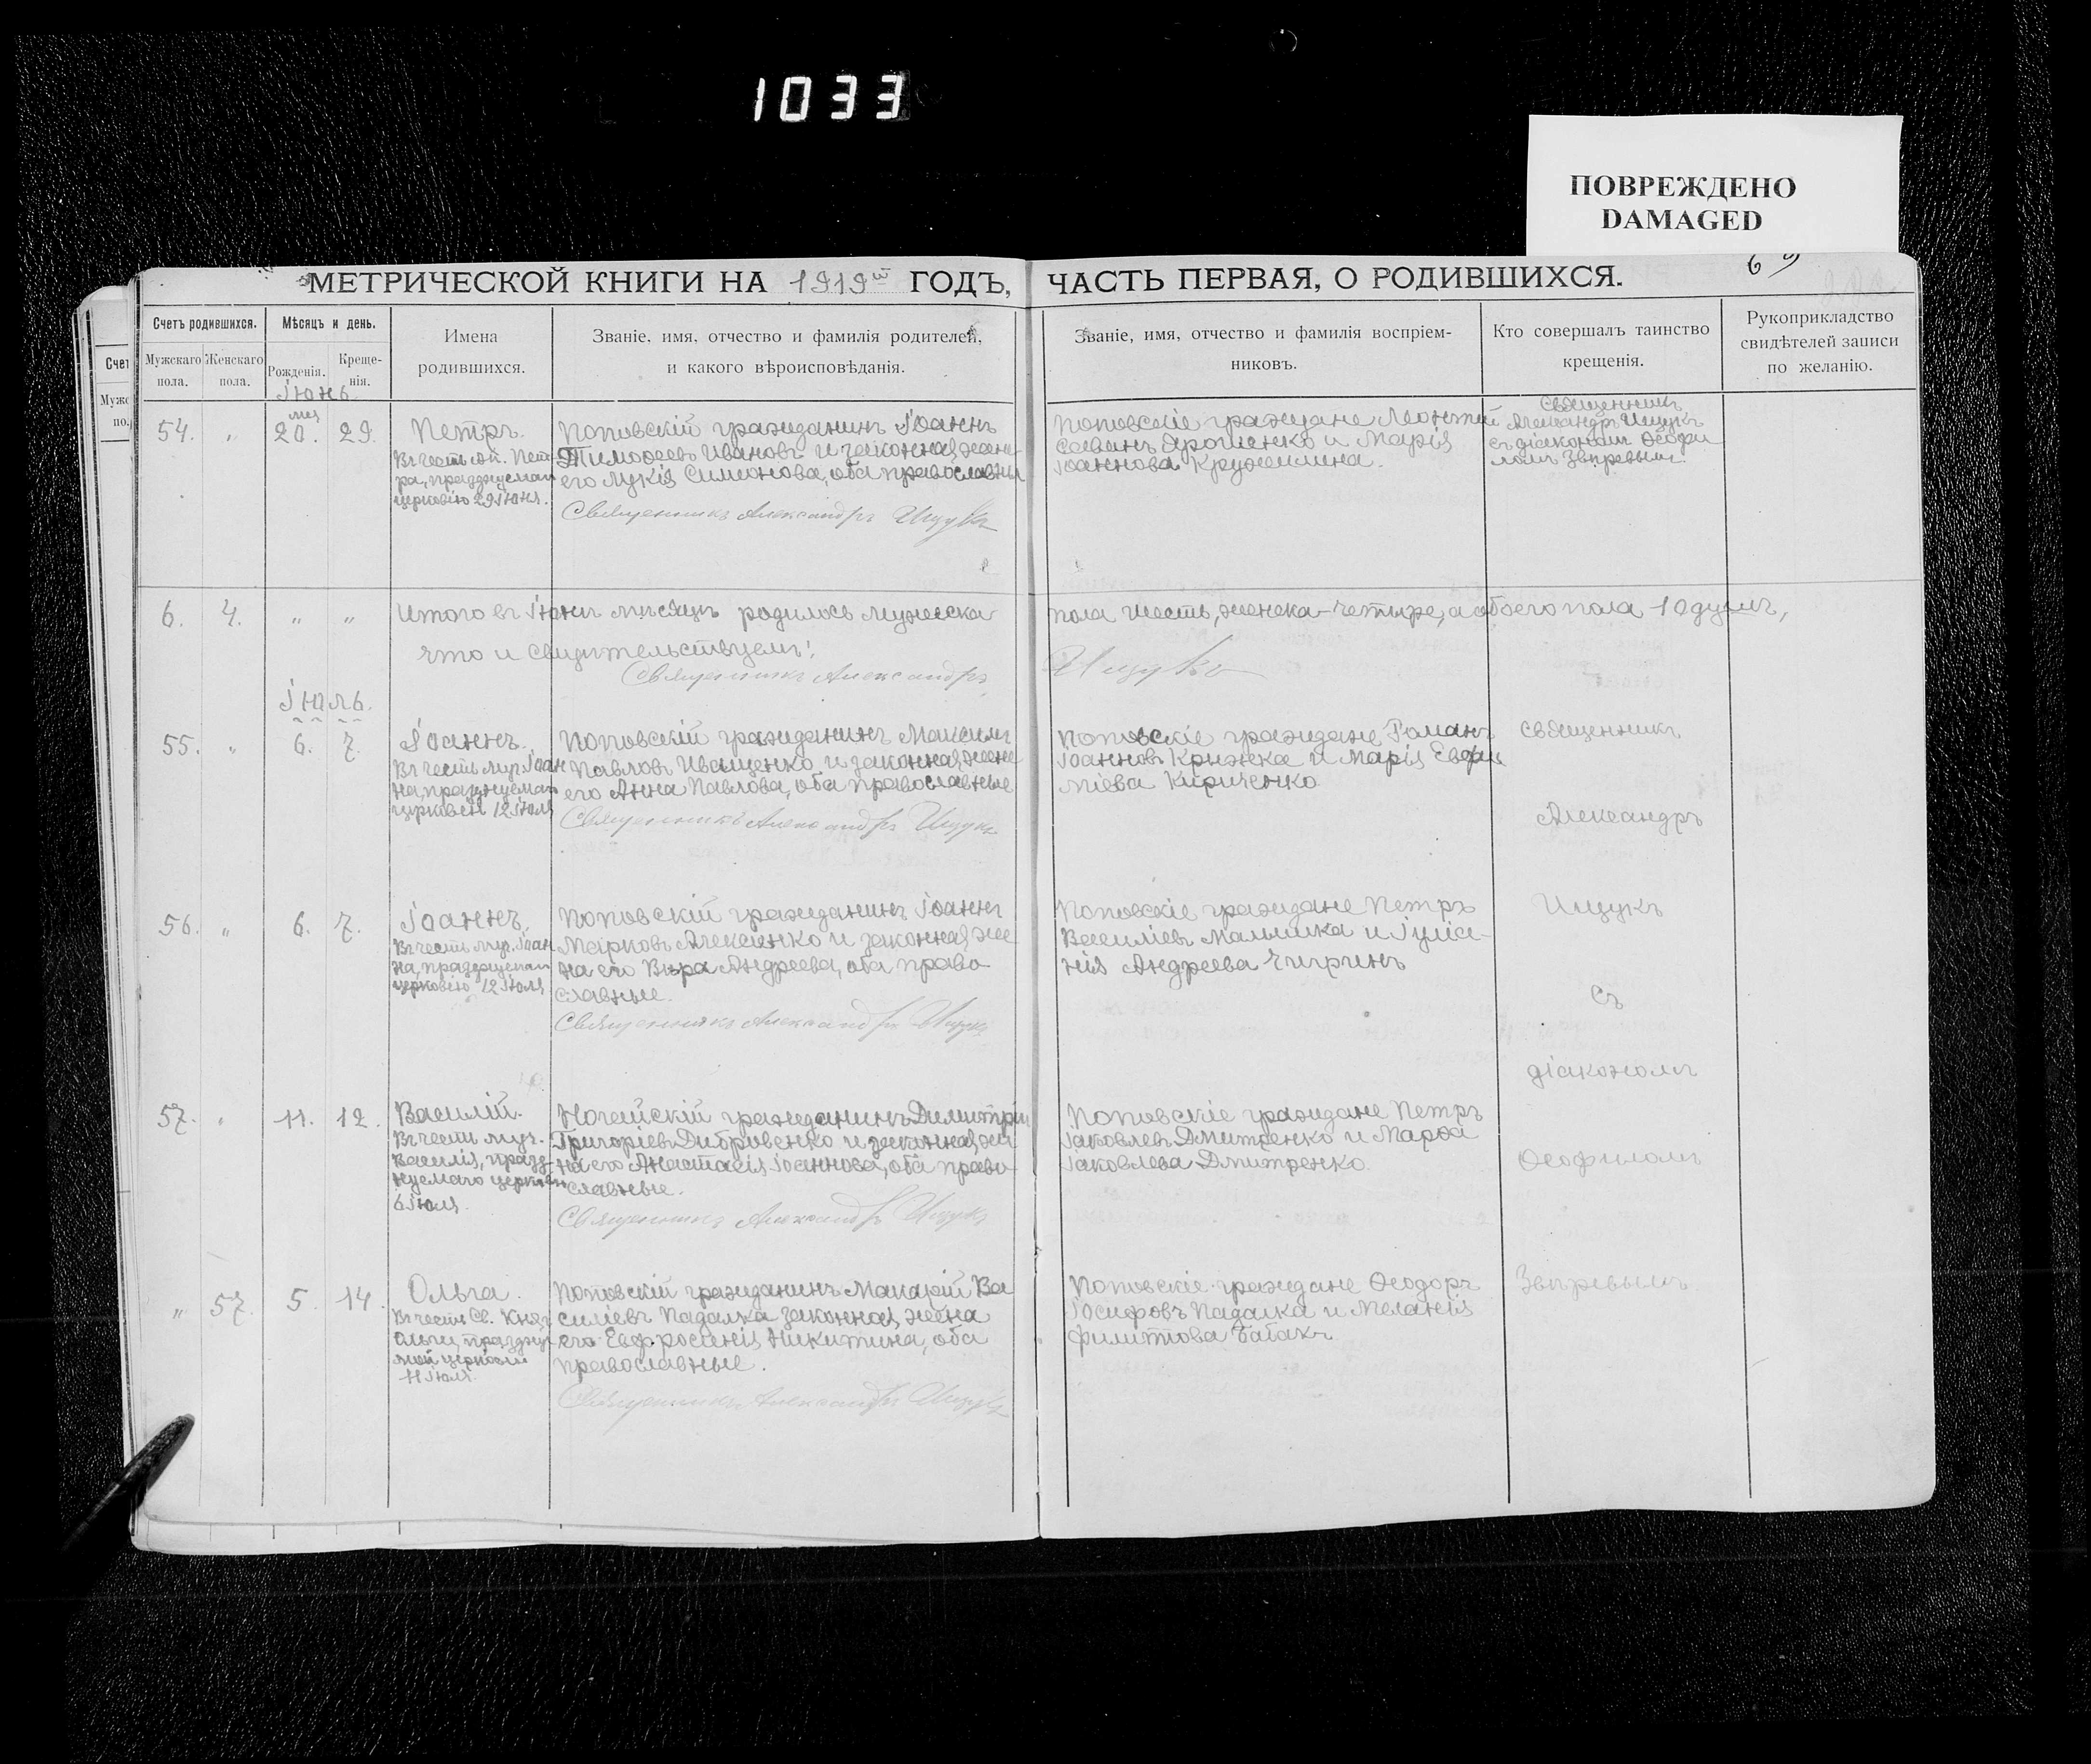 1033
ПОВРЕЖДЕНО
DAMAGED
69
МЕТРИЧЕСКОЙ КНИГИ НА 1919й ГОДЪ,
ЧАСТЬ ПЕРВАЯ, О РОДИВШИХСЯ.
Счетъ родившихся.
Мужскаго пола.
Женскаго пола.
Мѣсяцъ и день.
Рожденія.
Креще-
нія.
Имена
родившихся.
Званіе, имя, отчество и фамилія родителей,
и какого вѣроисповѣданія.
Званіе, имя, отчество и фамилія воспріем-
никовъ.
Кто совершалъ таинство
крещенія.
Рукоприкладство
свидѣтелей записи
по желанію.
Іюнь
54. " 20. 29.
Петръ.
Въ честь ап. Пет-
ра, празднуемаго
церковію 29 Іюня.
Поповскій гражданинъ Іоаннъ
Тимофеевъ Ивановъ и законная жена
его Лукія Симеонова, оба православны
Священникъ Александръ Ищукъ
Поповскіе граждане Леонтій
Ярошенко и Марія
Іоаннова Кружилина.
Священникъ
Александръ Ищукъ
съ діакономъ Ѳеофи
ломъ Звѣревымъ.
6. 4. " "
Итого въ Іюнѣ мѣсяцѣ родилось мужеска
пола шесть, женска - четыре, а обоего пола 10 душъ,
что и свидѣтельствуемъ:
Священникъ Александръ
Ищукъ
Іюль.
55. " 6. 7.
Іоаннъ.
Въ честь муч. Іоан
на, празднуемаго
церковію 12 Іюля
Поповскій гражданинъ Максимъ
Павловъ Иващенко и законная жена
его Анна Павлова, оба православные
Священникъ Александръ Ищукъ
Поповскіе граждане Романъ
Іоанновъ Крижка и Марія Евфи
міева Кириченко
Священникъ
Александръ
Ищукъ
съ
діакономъ
Ѳеофиломъ
Звѣревымъ
56. " 6. 7.
Іоаннъ.
Въ честь муч. Іоан
на, празднуемаго
церковію 12 Іюля
Поповскій гражданинъ Іоаннъ
Марковъ Алексенко и законная же
на его Вѣра Андреева, оба право
славные.
Священникъ Александръ Ищукъ
Поповскіе граждане Петръ
Василіевъ Малышка и Іуліа-
нія Андреева Чигринъ
57. " 11. 12.
Василій.
Въ честь муч.
Василія, празд-
нуемаго церковію
6 Іюля
Ногайскій гражданинъ Димитрій
Григоріевъ Дибровенко и законная же
на его Анастасія Іоаннова, оба право
славные.
Священникъ Александръ Ищукъ
Поповскіе граждане Петръ
Іаковлевъ Дмитренко и Марѳа
Іаковлева Дмитренко.
" 57. 5. 14.
Ольга.
Въ честь Св. Княг.
Ольги, празднуе
мой церковію
11 Іюля.
Поповскій гражданинъ Макарій Ва
силіевъ Падалка законная жена
его Евфросинія Никитина, оба
православные.
Священникъ Александръ Ищукъ
Поповскіе граждане Ѳеодоръ
Іосифовъ Падалка и Меланія
Филиппова Бабакъ